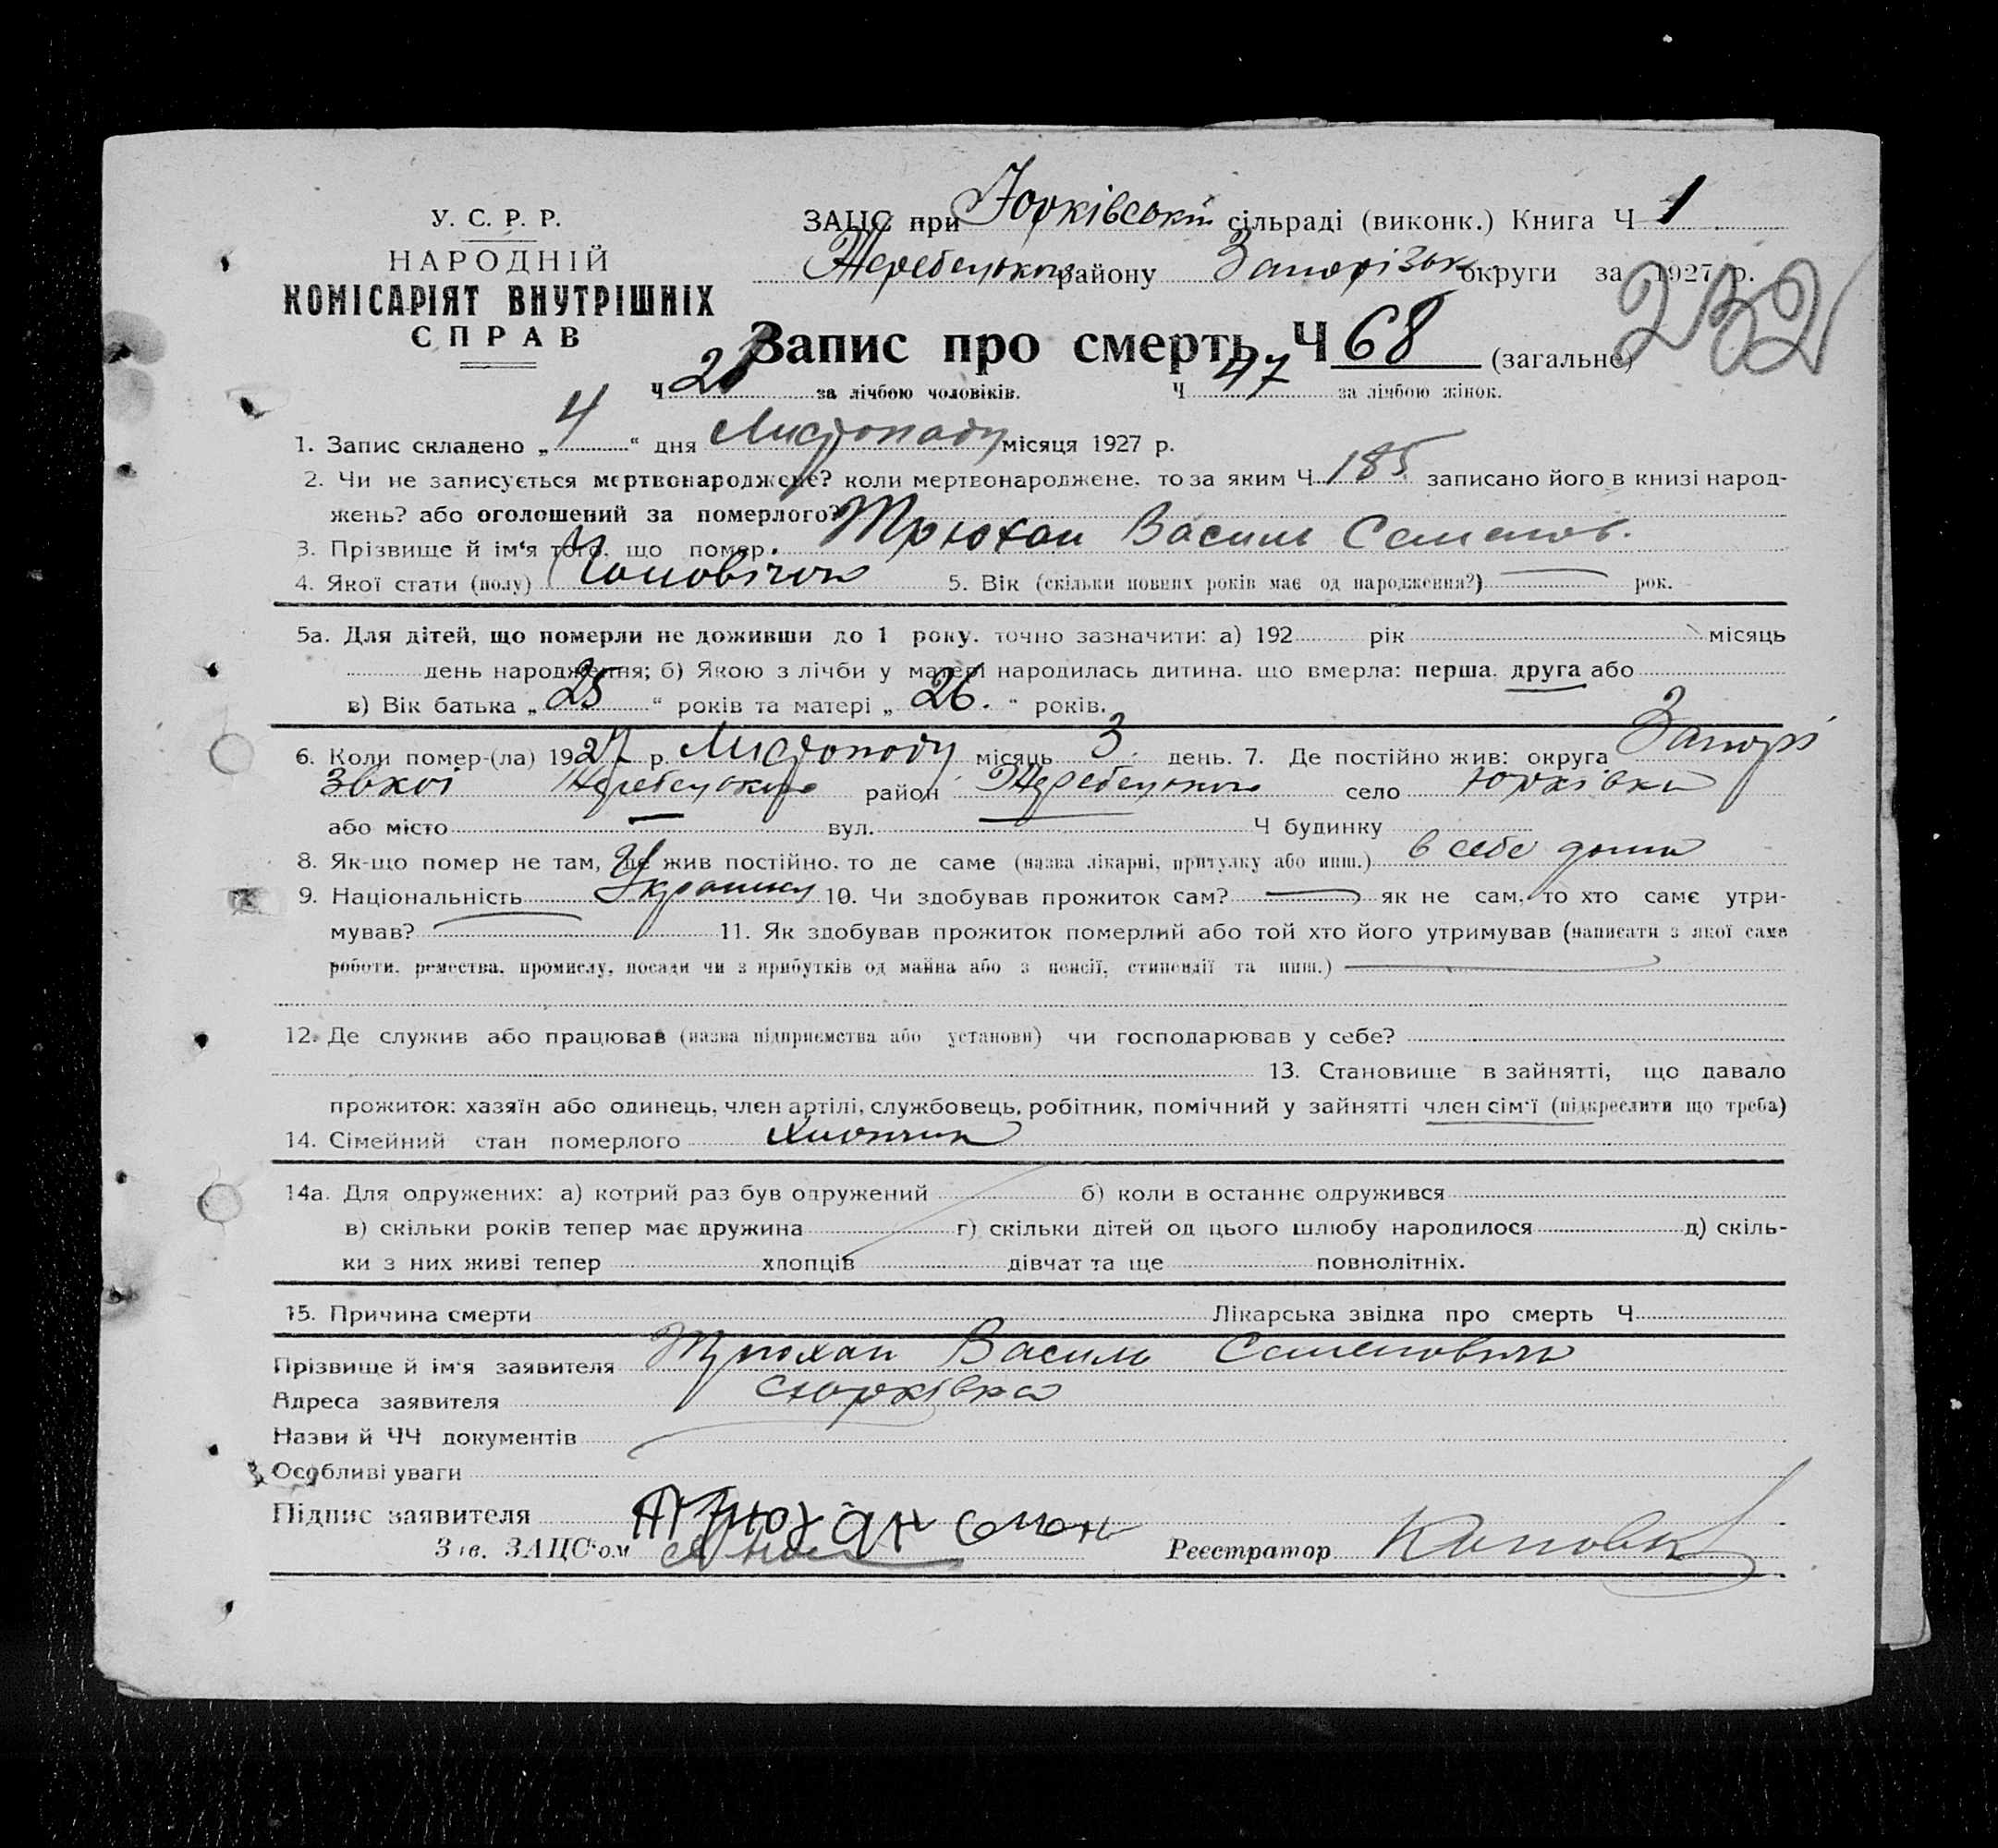 У. С. Р. Р.
НАРОДНІЙ
КОМІСАРІЯТ ВНУТРІШНІХ
СПРАВ
ЗАЦС при Юрківській сільраді (виконк.) Книга Ч 1
Жеребецького району Запорізьк округи за 1927 р.
232
Запис про смерть Ч 68 (загальне)
Ч 21 за лічбою чоловіків. Ч 47 за лічбою жінок.
1. Запис складено „ 4 “ дня Листопаду місяця 1927 р.
2. Чи не записується мертвонароджене? коли мертвонароджене, то за яким Ч 185 записано його в книзі народ-
жень? або оголошений за померлого?
3. Прізвище й ім'я того, що помер. Трюхан Василь Семенов.
4. Якої стати (полу) Чоловічої 5. Вік (скільки повних років має од народження?) — рок.
5а. Для дітей, що померли не доживши до 1 року, точно зазначити: а) 192 рік місяць
день народження; б) Якою з лічби у матері народилась дитина, що вмерла: перша, друга або
в) Вік батька „ 25 “ років та матері „ 26. “ років.
6. Коли помер-(ла) 1927 р. Листопаду місяць 3 день. 7. Де постійно жив: округа Запорі
звкої Жеребецького район Жеребецького село Юрківка
або місто — вул. — Ч будинку
8. Як-що помер не там, де жив постійно, то де саме (назва лікарні, притулку або инш.) в себе дома
9. Національність Українец 10. Чи здобував прожиток сам? — як не сам, то хто саме утри-
мував? — 11. Як здобував прожиток померлий або той хто його утримував (написати з якої саме
роботи, ремества, промислу, посади чи з прибутків од майна або з пенсії, стипендії та инш.) —
12. Де служив або працював (назва підприємства або установи) чи господарював у себе?
13. Становище в зайнятті, що давало
прожиток: хазяїн або одинець, член артілі, службовець, робітник, помічний у зайнятті член сім'ї (підкреслити що треба)
14. Сімейний стан померлого хлопчик
14а. Для одружених: а) котрий раз був одружений б) коли в останнє одружився
в) скільки років тепер має дружина г) скільки дітей од цього шлюбу народилося д) скіль-
ки з них живі тепер хлопців дівчат та ще повнолітніх.
15. Причина смерти Лікарська звідка про смерть Ч
Прізвище й ім'я заявителя Трюхан Василь Семенович
Адреса заявителя с Юрківка
Назви й ЧЧ документів
Особливі уваги
Підпис заявителя Трюхан
Зав. ЗАЦС'ом Реєстратор